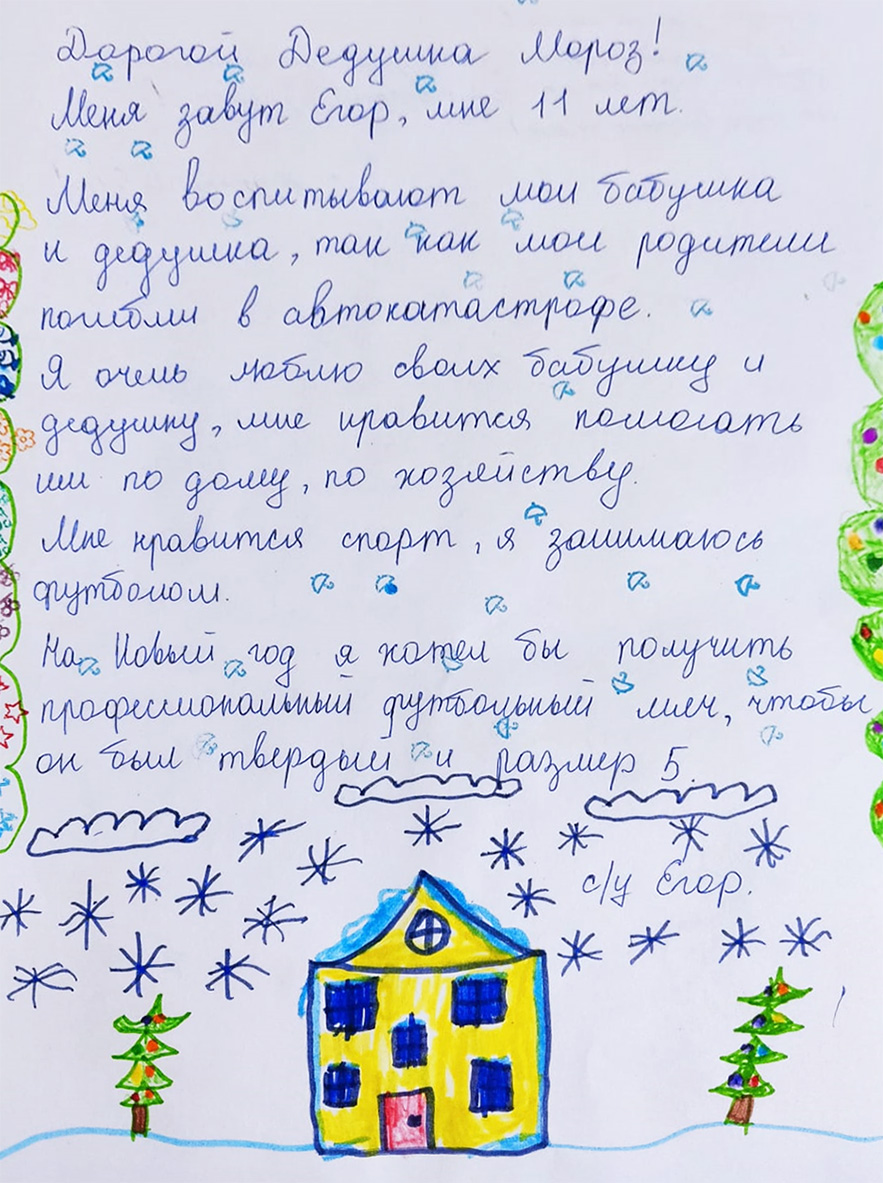 Дорогой Дедушка Мороз!
Меня завут Егор, мне 11 лет.
Меня воспитывают мои бабушка
и дедушка, так как мои родители
погибли в автокатастрофе.
Я очень люблю своих бабушку и
дедушку, мне нравится помогать
им по дому, по хозяйству.
Мне нравится спорт, я занимаюсь
футболом.
На Новый год я хотел бы получить
профессиональный футбольный мяч, чтобы
он был твердый и размер 5.
с/у Егор.